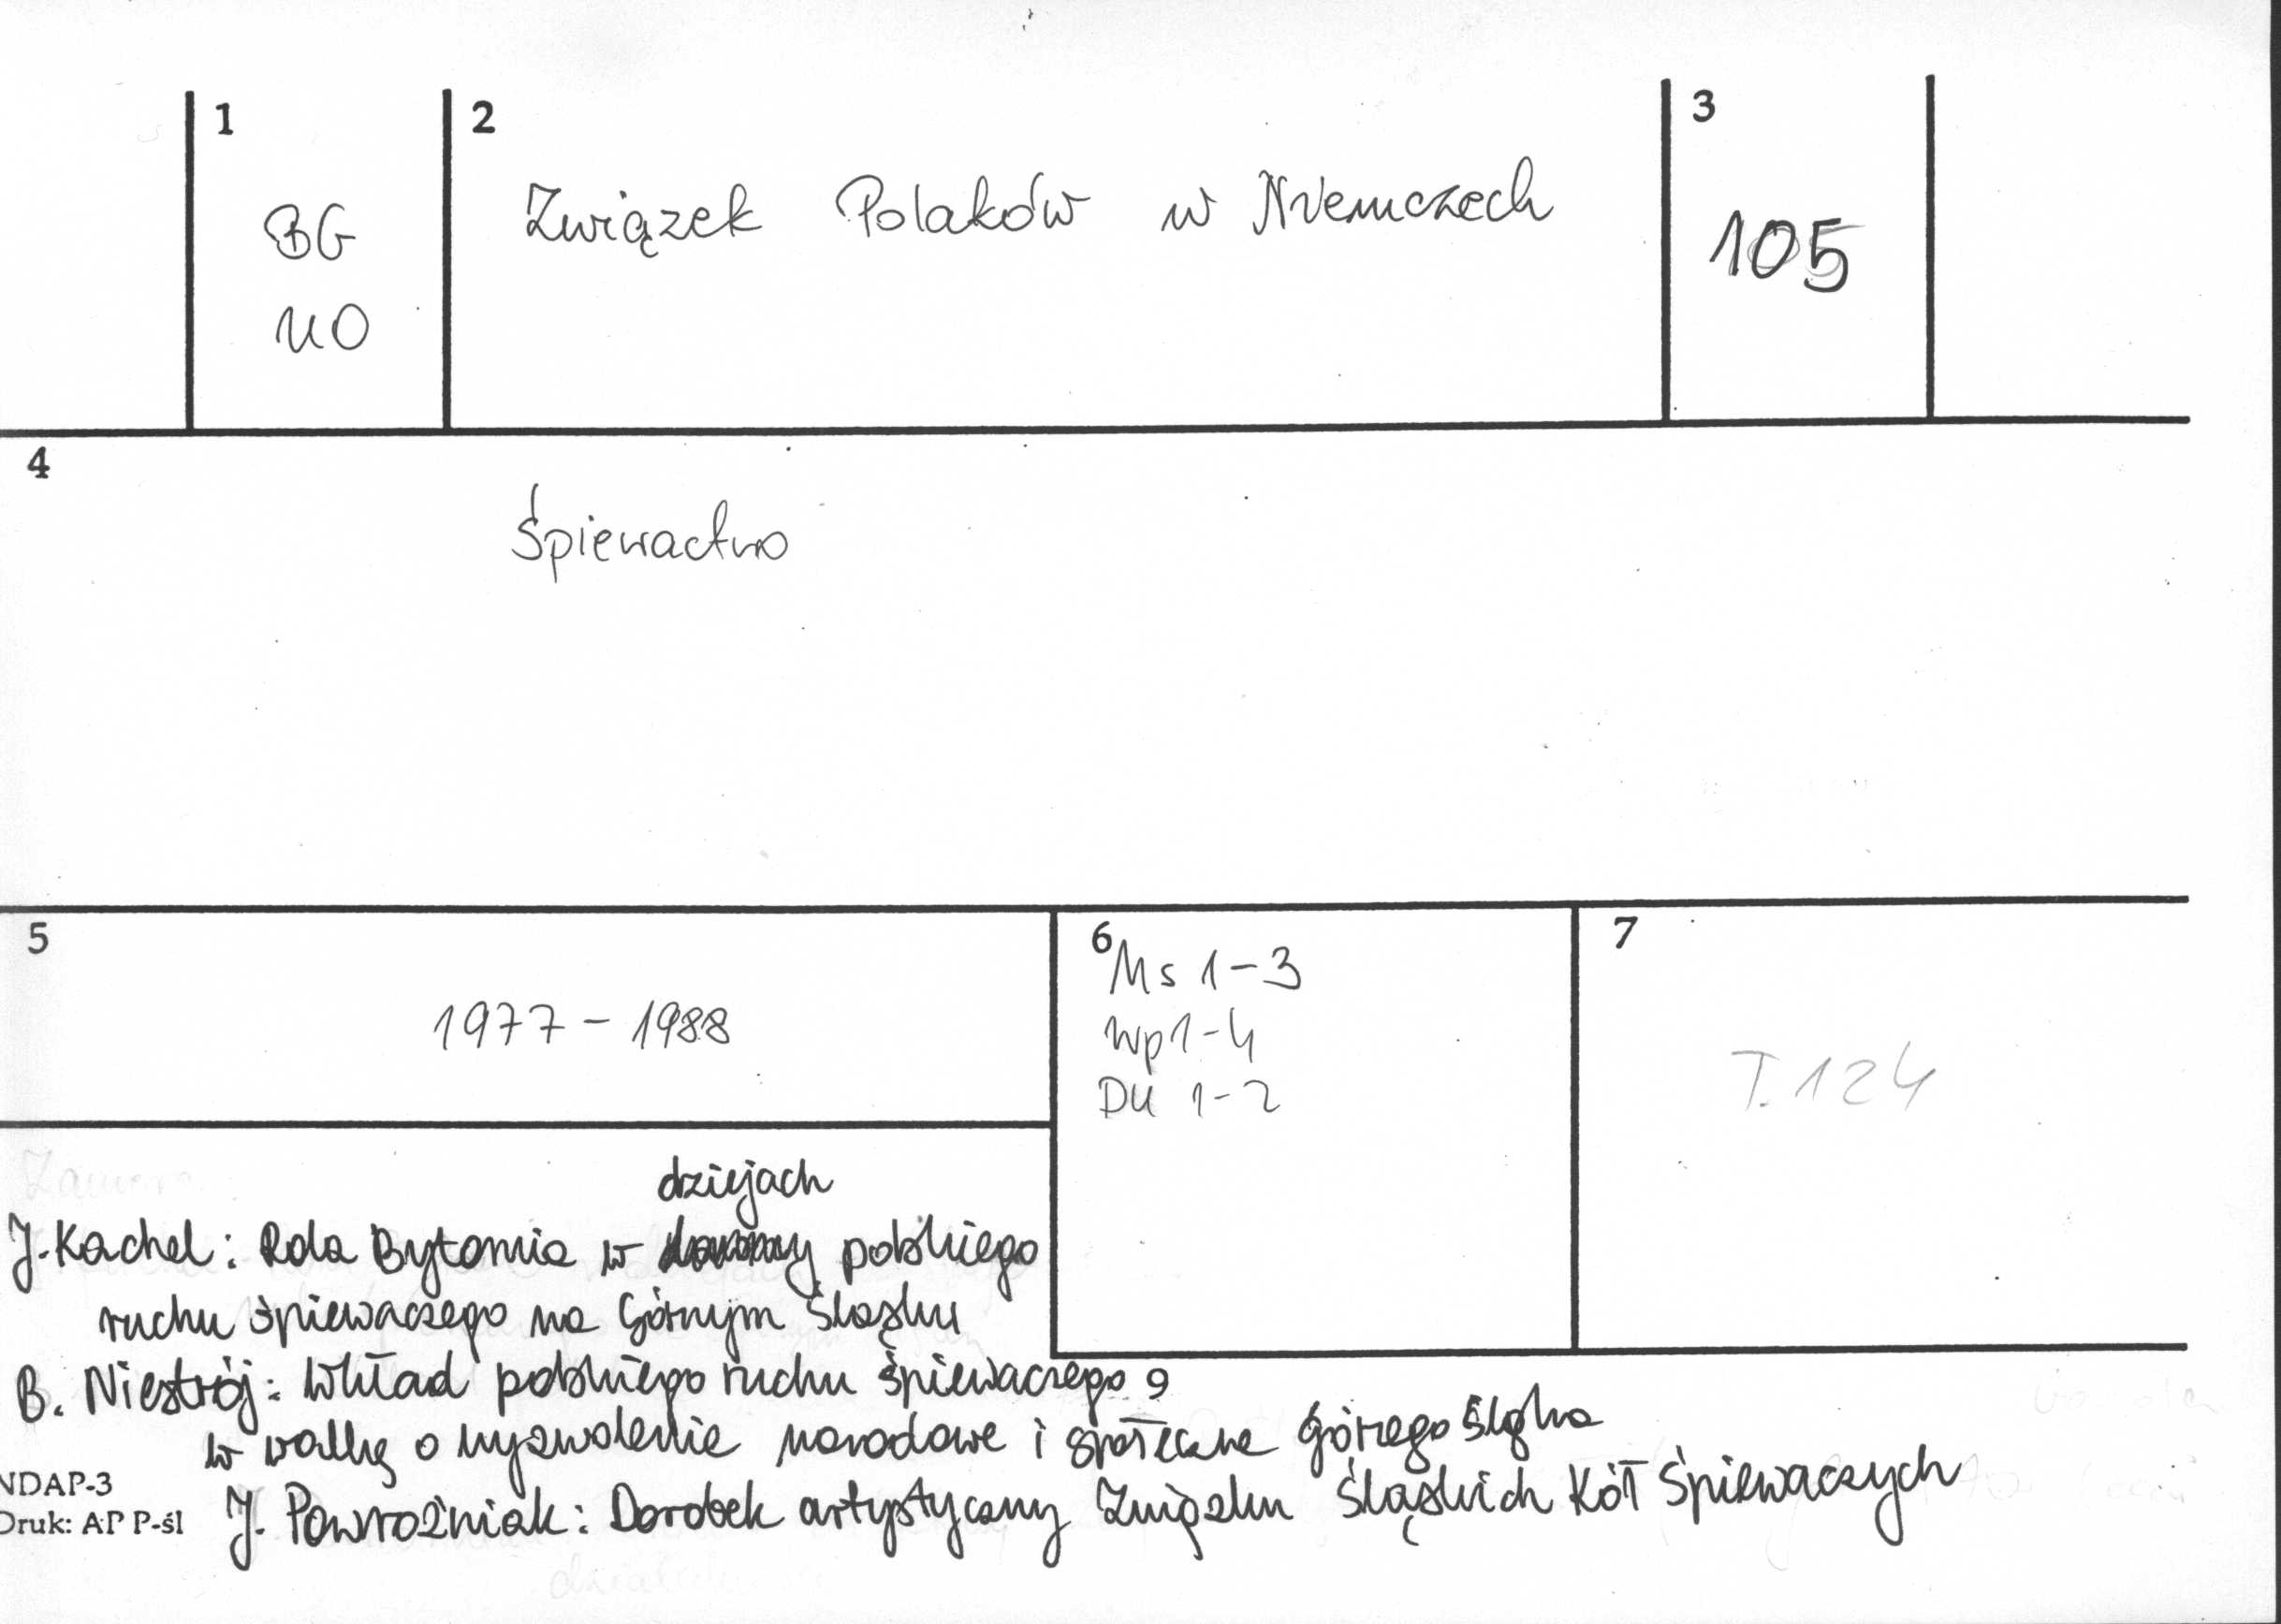 1
BG
UO
2
Związek Polaków w Niemczech
3
105
4
Śpiewactwo
5
1977 - 1988
6
Ms 1-3
Wp 1-4
DU 1-2
7
T. 124
dziejach
J. Kachel: Rola Bytomia w polskiego
ruchu śpiewaczego na Górnym Śląsku
B. Niestrój: Wkład polskiego ruchu śpiewaczego 9
w walkę o wyzwolenie narodowe i społeczne Górnego Śląska
J. Powroźniak: Dorobek artystyczny Związku Śląskich Kół Śpiewaczych
NDAP-3
Druk: AP P-śl